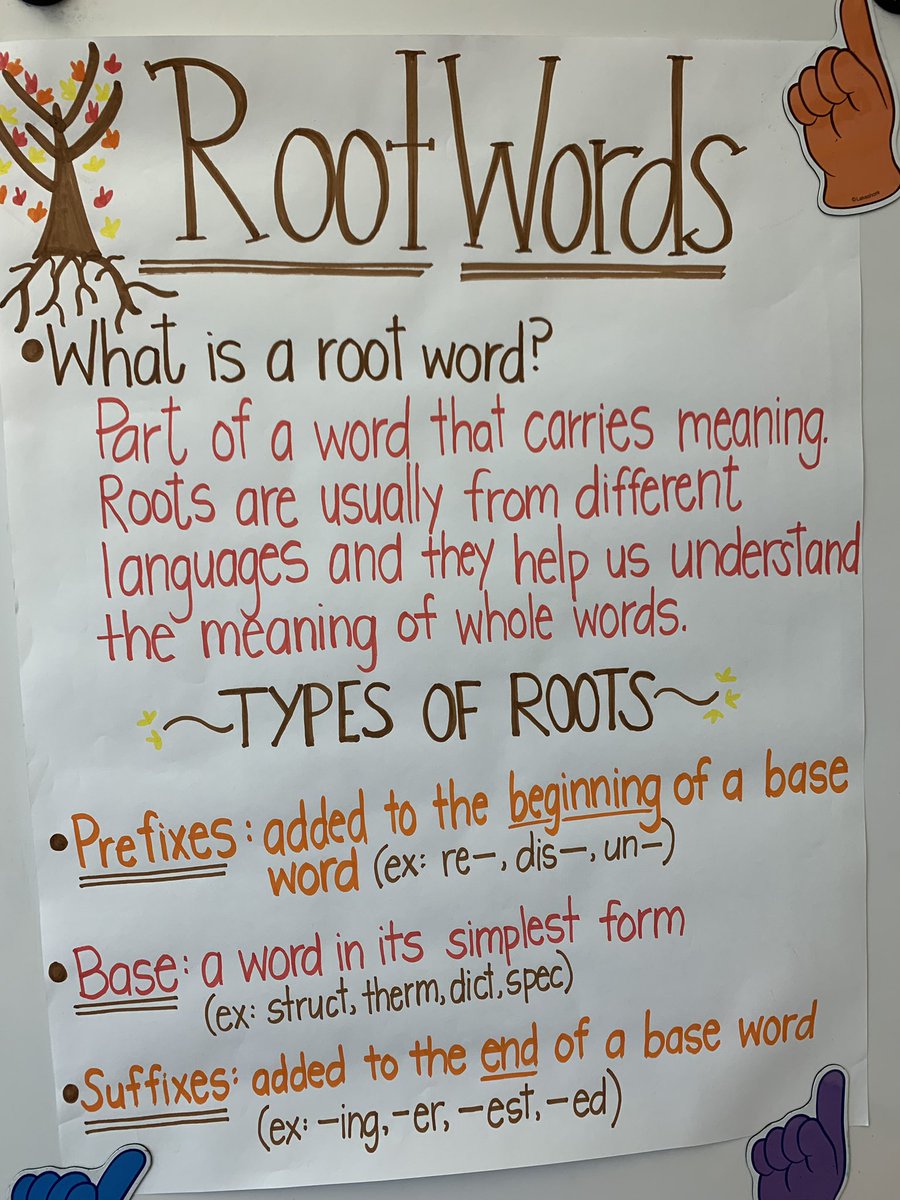 Root Words
©Lakeshore
•What is a root word?
Part of a word that carries meaning.
Roots are usually from different
languages and they help us understand
the meaning of whole words.
~TYPES OF ROOTS~
•Prefixes: added to the beginning of a base
word (ex: re-, dis-, un-)
•Base: a word in its simplest form
(ex: struct, therm, dict, spec)
•Suffixes: added to the end of a base word
(ex: -ing, -er, -est, -ed)